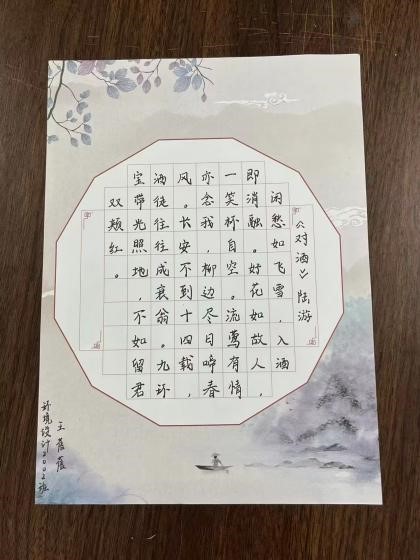 《对酒》陆游
闲愁如飞雪，入酒
即消融。好花如故人，
一笑杯自空。流莺有情，
亦念我，柳边尽日啼春
风。长安不到十四载，
酒徒往往成衰翁。九环
宝带光照地，不如留君
双颊红。
王
环境设计2002班